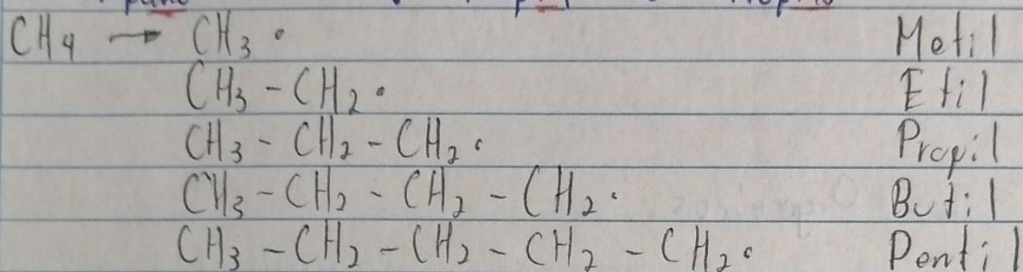 CH₄ → CH₃• Metil
CH₃ – CH₂• Etil
CH₃ – CH₂ – CH₂• Propil
CH₃ – CH₂ – CH₂ – CH₂• Butil
CH₃ – CH₂ – CH₂ – CH₂ – CH₂• Pentil